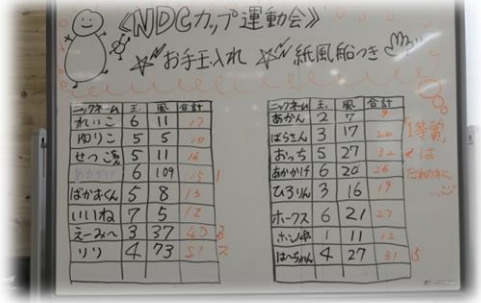 《NDCカップ運動会》
☆お手玉入れ ☆紙風船つき
ニックネーム 玉 風 合計
れいこ 6 11 17
ゆりこ 5 5 10
せつこ 5 11 16
6 109 115 1
ばかまくん 5 8 13
いいね 7 5 12
えーみへ 3 37 40 3
リリ 4 73 77 2
ニックネーム 玉 風 合計
あかん 2 7 9
ばらさん 3 17 20
おっち 5 27 32
あかかげ 6 20 26
ひろりん 3 16 19
ホークス 6 21 27
1 11 12
はーちゃん 4 27 31 5
1等賞
は
だれの手に